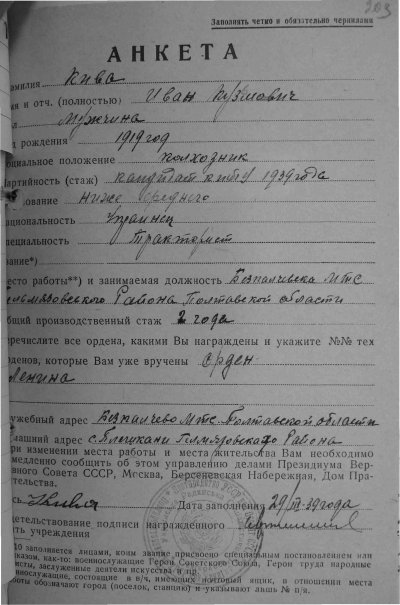 203
Заполнять четко и обязательно чернилами
АНКЕТА
амилия Кива
мя и отч. (полностью) Иван Кузмович
л Мужчина
д рождения 1919 год
циальное положение колхозник
артийность (стаж) кандидат КП(б)У 1939 года
ование ниже среднего
ациональность Украинец
ециальность Тракторист
вание*)
есто работы**) и занимаемая должность Безпалчевска МТС
ельмязовского Района Полтавской области
бщий производственный стаж 2 года
еречислите все ордена, какими Вы награждены и укажите №№ тех
рденов, которые Вам уже вручены орден
Ленина
лужебный адрес Безпалчево МТС Полтавской области
машний адрес с. Плешкани Гелмязовского Района
ри изменении места работы и места жительства Вам необходимо
медленно сообщить об этом управлению делами Президиума Вер-
вного Совета СССР, Москва, Берсеневская Набережная, Дом Пра-
тельства.
сь Кива Дата заполнения 29/III-39 года
детельствование подписи награжденного
ть учреждения
*) Заполняется лицами, коим звание присвоено специальным постановлением или
казом, как-то: военнослужащие Герои Советского Союза, Герои труда народные
исты, заслуженные деятели искусства и пр.
еннослужащие, состоящие в в/ч, имеющих почтовый ящик, в отношении места
боты обозначают город (поселок, станцию) и указывают лишь № п/я.